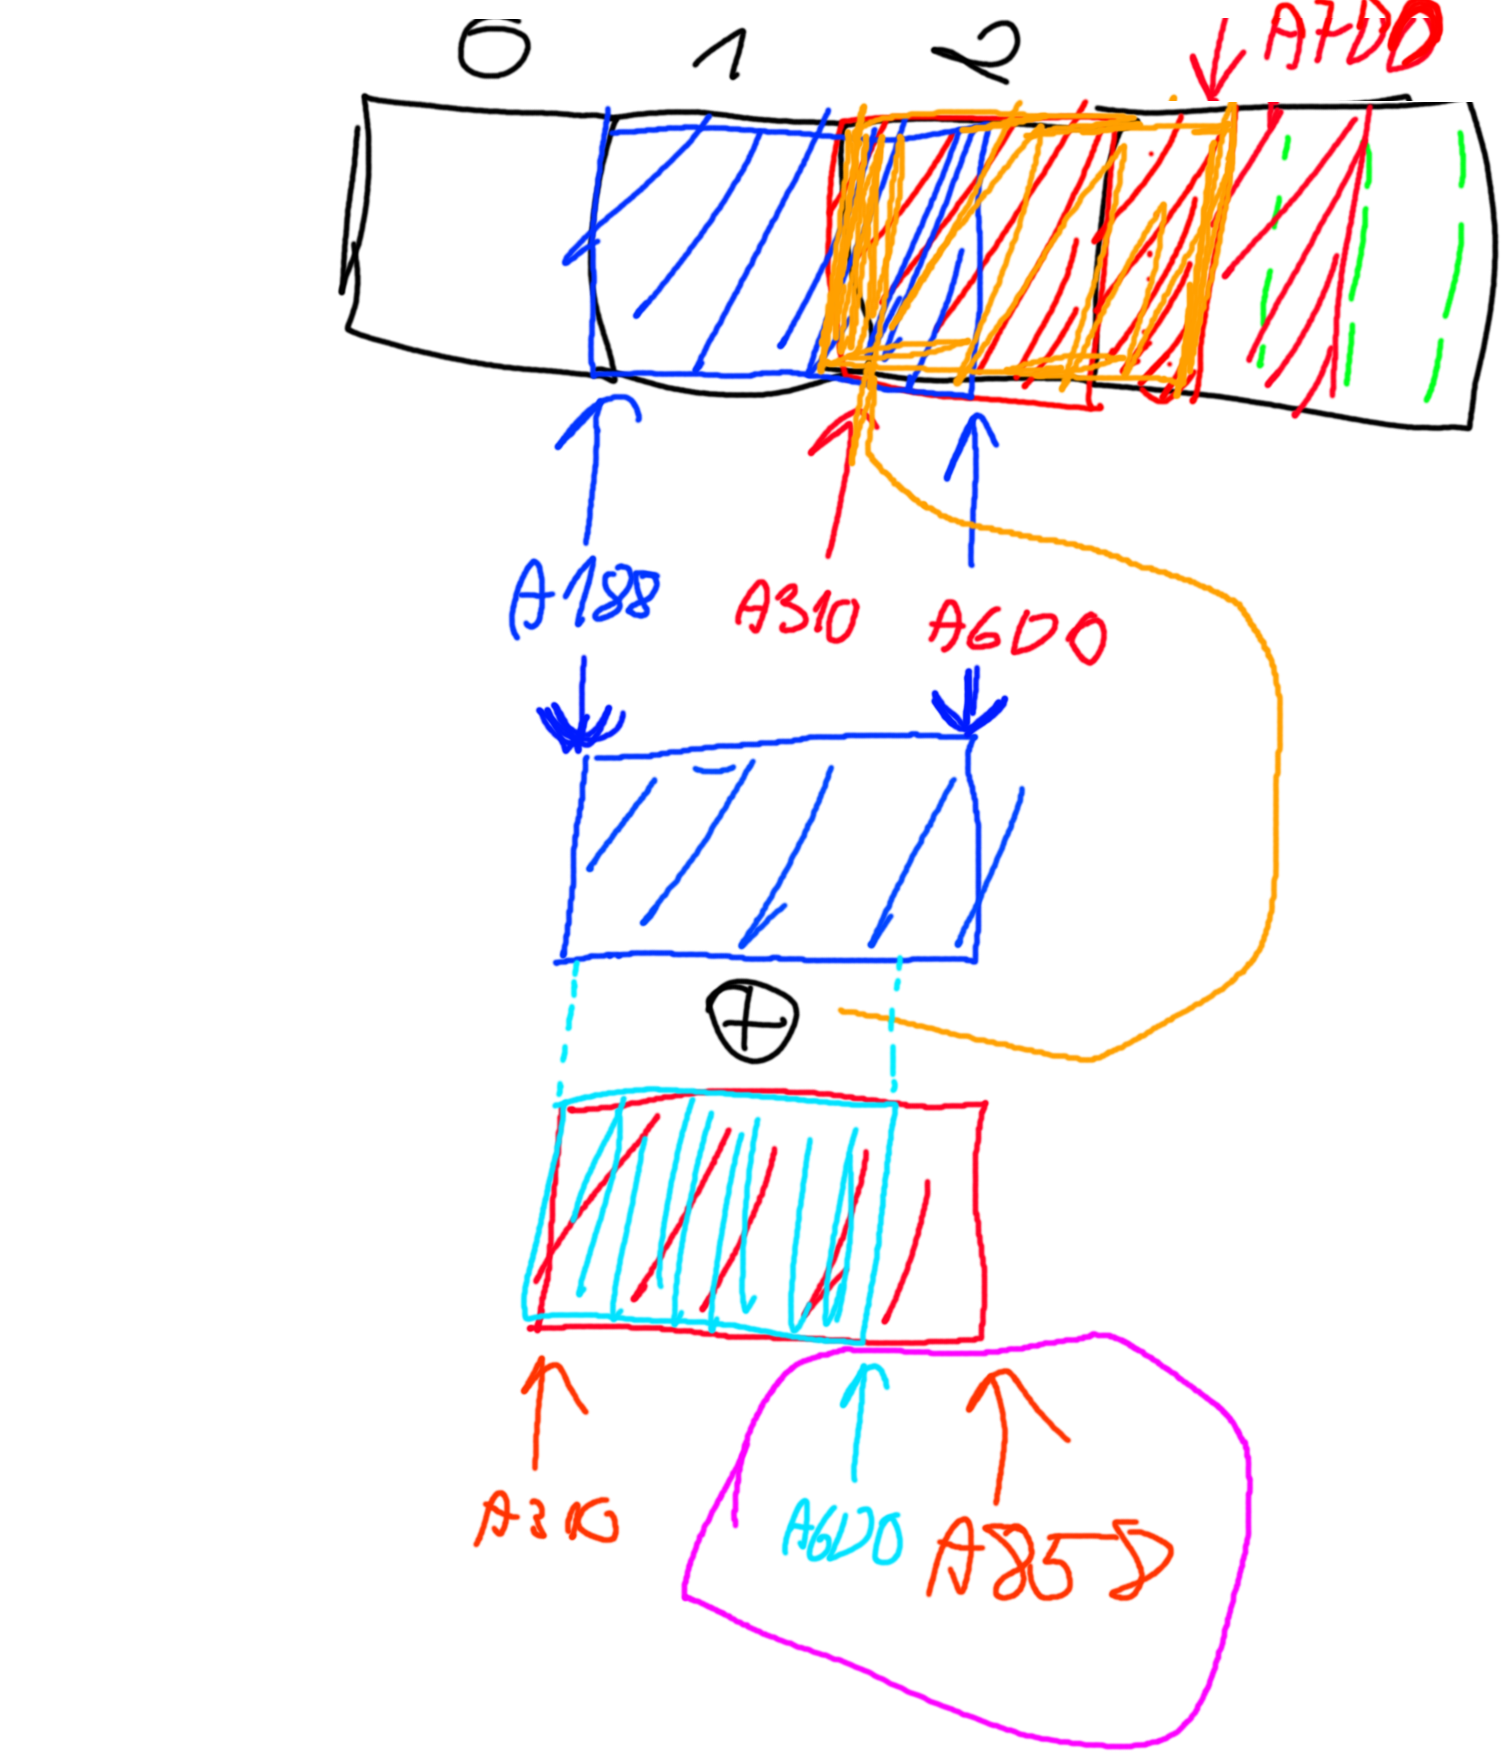 0 1 2 A7D0
A188 A310 A6D0
A310 A6D0 A858